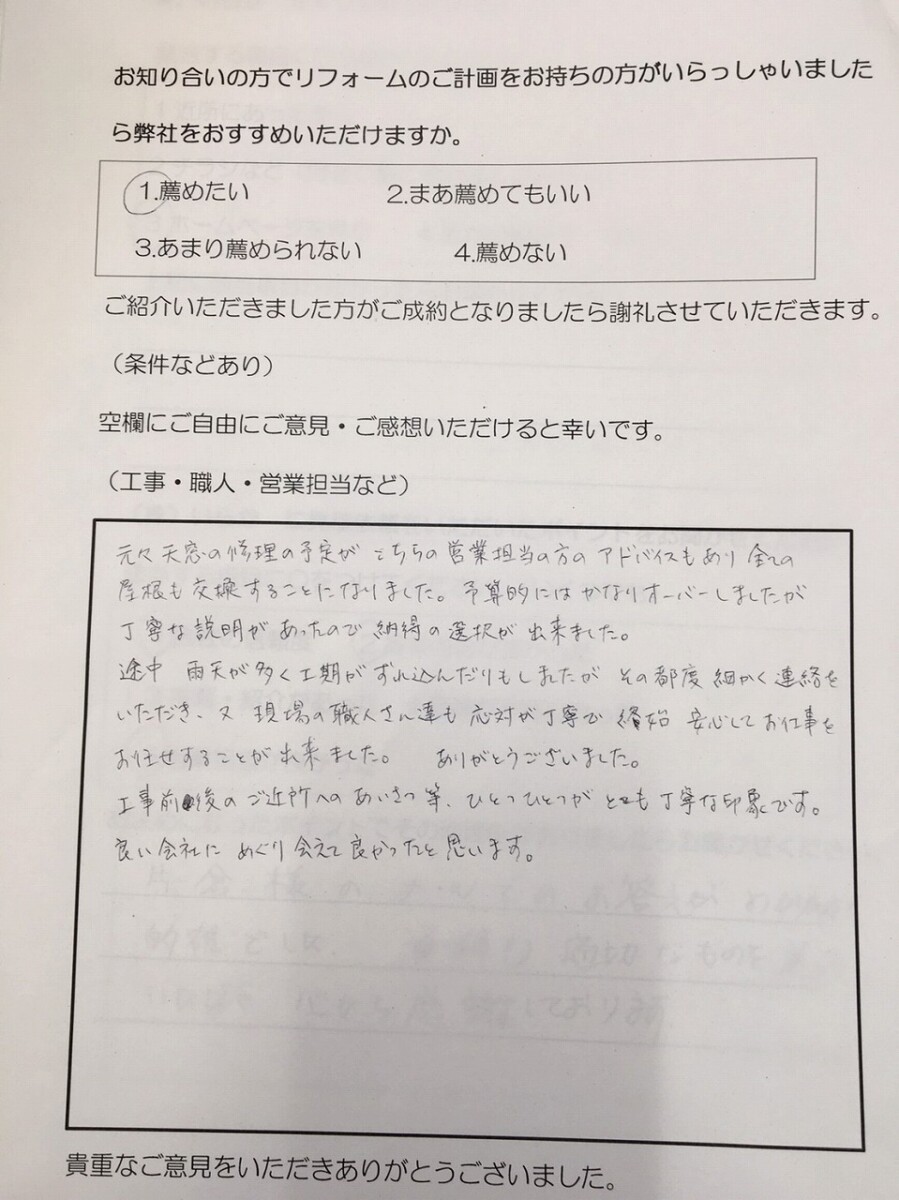 お知り合いの方でリフォームのご計画をお持ちの方がいらっしゃいました
ら弊社をおすすめいただけますか。
1.薦めたい 2.まあ薦めてもいい
3.あまり薦められない 4.薦めない
ご紹介いただきました方がご成約となりましたら謝礼させていただきます。
（条件などあり）
空欄にご自由にご意見・ご感想いただけると幸いです。
（工事・職人・営業担当など）
元々天窓の修理の予定が こちらの営業担当の方の アドバイスもあり 全ての
屋根も交換することになりました。予算的にはかなりオーバーしましたが
丁寧な説明があったので 納得の選択が 出来ました。
途中 雨天が多く工期がずれ込んだりもしましたが その都度 細かく連絡を
いただき、又 現場の職人さん達も 応対が丁寧で 終始 安心してお仕事を
お任せすることが出来ました。 ありがとうございました。
工事前後の ご近所への あいさつ等、ひとつひとつが とても丁寧な印象です。
良い会社に めぐり会えて良かったと思います。
貴重なご意見をいただきありがとうございました。